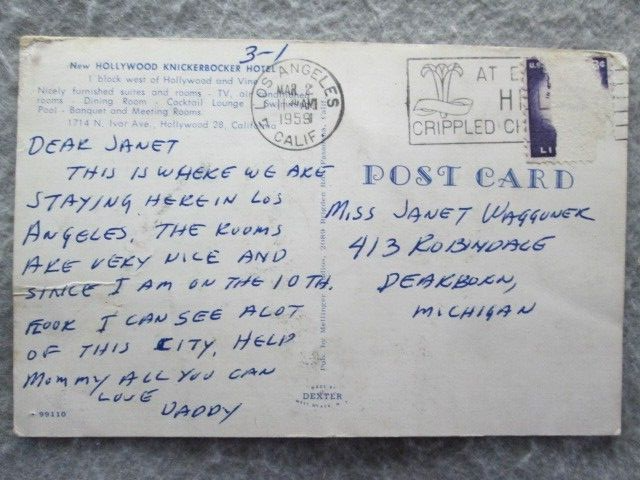 3-1
New HOLLYWOOD KNICKERBOCKER HOTEL
1 block west of Hollywood and Vine
Nicely furnished suites and rooms - TV, air
rooms - Dining Room - Cocktail Lounge
Pool - Banquet and Meeting Rooms.
1714 N. Ivar Ave., Hollywood 28, California
LOS ANGELES
MAR 2
AM
1959
CALIF
AT
CRIPPLED
DEAR JANET
THIS IS WHERE WE ARE
STAYING HERE IN LOS
ANGELES. THE ROOMS
ARE VERY NICE AND
SINCE I AM ON THE 10TH.
FLOOR I CAN SEE ALOT
OF THIS CITY. HELP
MOMMY ALL YOU CAN
LOVE
DADDY
POST CARD
MISS JANET WAGGONER
413 ROBINDALE
DEARBORN,
MICHIGAN
MADE BY
DEXTER
99110